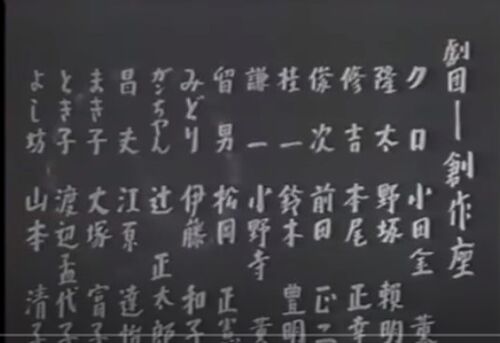 劇団ー創作座
クロ 小田金 薫
隆太 野塚 頼明
修吉 本尾 正幸
俊次 前田 正二
桂一 鈴木 豊明
謙一 小野寺
留男 松岡 正憲
みどり 伊藤 和子
ガンちゃん 辻 正太郎
昌丈 江原 達
まき子 大塚 富子
とき子 渡辺 孟代子
よし坊 山本 清子